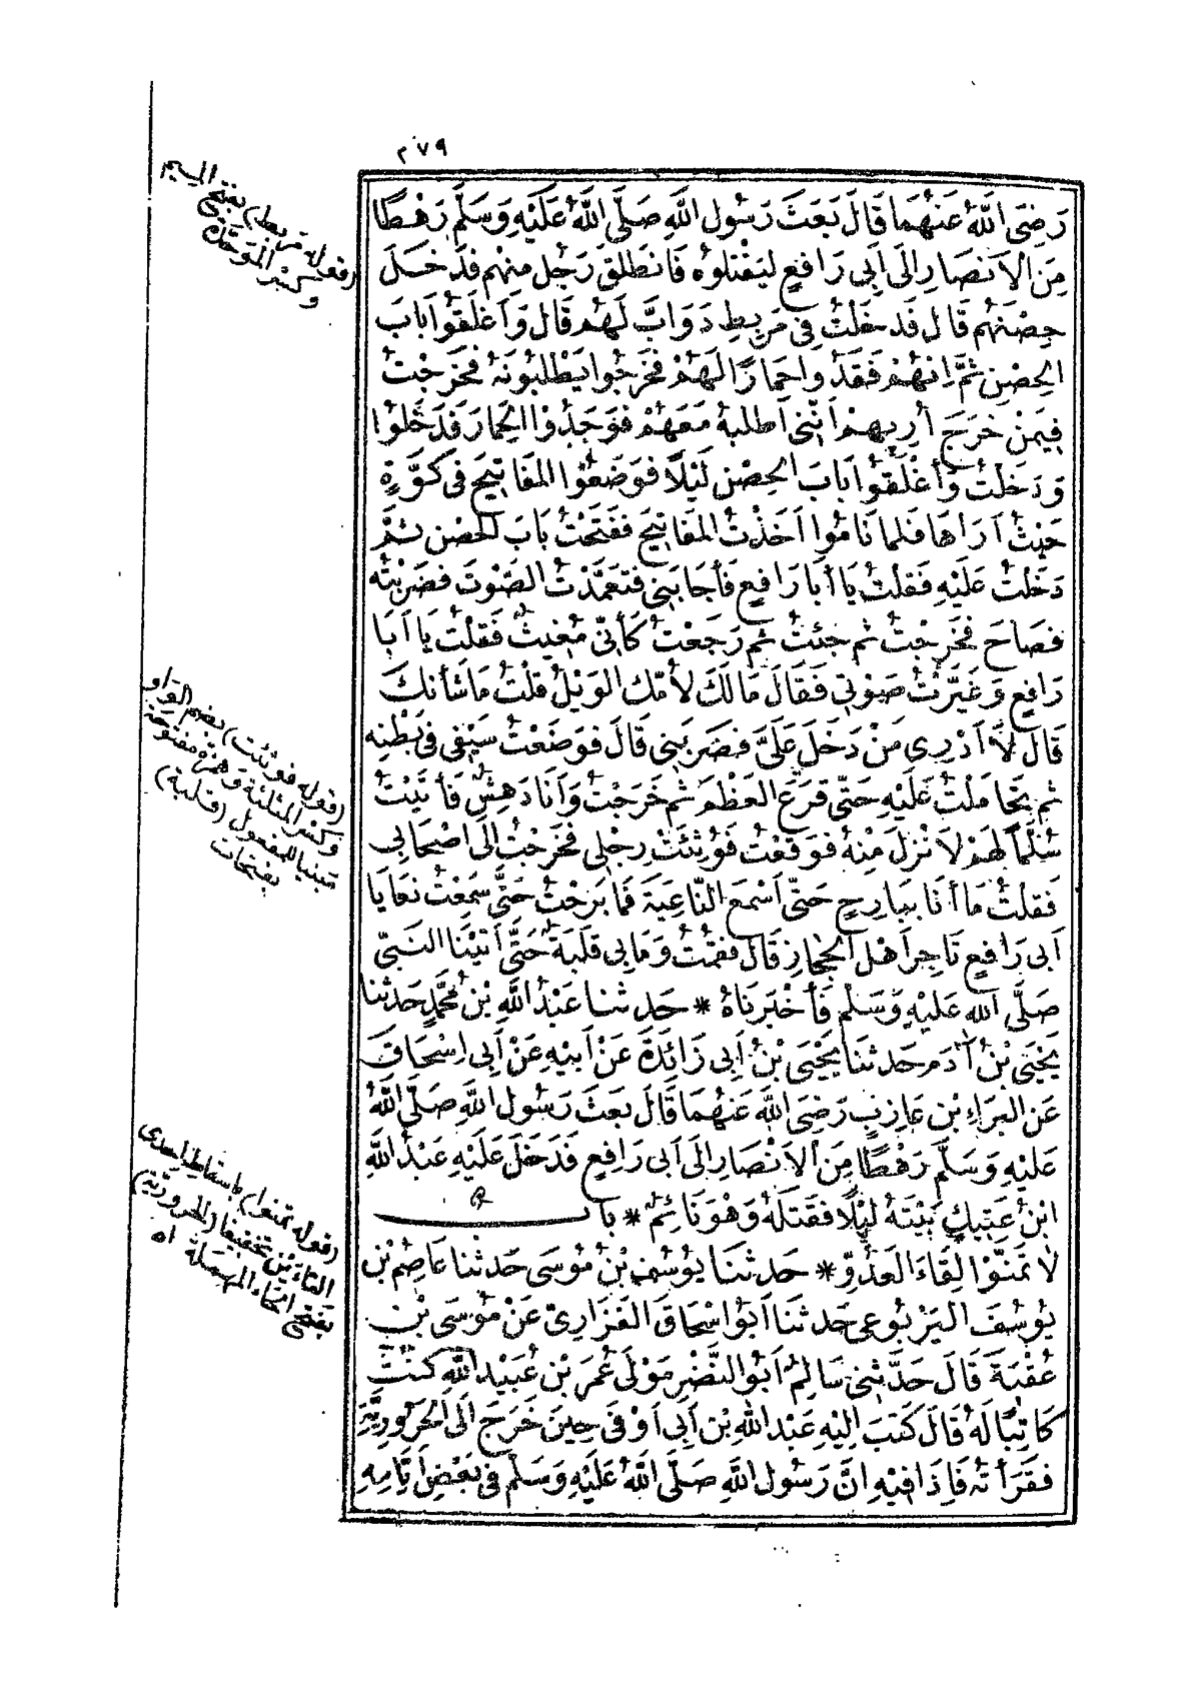 ٢٧٩
رَضِىَ اللَّهُ عَنْهُمَا قَالَ بَعَثَ رَسُولُ اللَّهِ صَلَّى اللَّهُ عَلَيْهِ وَسَلَّمَ رَهْطًا
مِنَ الْاَنْصَارِ اِلَى اَبِى رَافِعٍ لِيَقْتُلُوهُ فَانْطَلَقَ رَجُلٌ مِنْهُمْ فَدَخَلَ
حِصْنَهُمْ قَالَ فَدَخَلْتُ فِى مَرْبِطِ دَوَابَّ لَهُمْ قَالَ وَاَغْلَقُوا بَابَ
الْحِصْنِ ثُمَّ اِنَّهُمْ فَقَدُوا حِمَارًا لَهُمْ فَخَرَجُوا يَطْلُبُونَهُ فَخَرَجْتُ
فِيمَنْ خَرَجَ اُرِيهِمْ اَنَّنِى اَطْلُبُهُ مَعَهُمْ فَوَجَدُوا الْحِمَارَ فَدَخَلُوا
وَدَخَلْتُ وَاَغْلَقُوا بَابَ الْحِصْنِ لَيْلًا فَوَضَعُوا الْمَفَاتِيحَ فِى كَوَّةٍ
حَيْثُ اَرَاهَا فَلَمَّا نَامُوا اَخَذْتُ الْمَفَاتِيحَ فَفَتَحْتُ بَابَ الْحِصْنِ ثُمَّ
دَخَلْتُ عَلَيْهِ فَقُلْتُ يَا اَبَا رَافِعٍ فَاَجَابَنِى فَتَعَمَّدْتُ الصَّوْتَ فَضَرَبْتُهُ
فَصَاحَ فَخَرَجْتُ ثُمَّ جِئْتُ ثُمَّ رَجَعْتُ كَاَنِّى مُغِيثٌ فَقُلْتُ يَا اَبَا
رَافِعٍ وَغَيَّرْتُ صَوْتِى فَقَالَ مَا لَكَ لِاُمِّكَ الْوَيْلُ قُلْتُ مَا شَأْنُكَ
قَالَ لَا اَدْرِى مَنْ دَخَلَ عَلَىَّ فَضَرَبَنِى قَالَ فَوَضَعْتُ سَيْفِى فِى بَطْنِهِ
ثُمَّ تَحَامَلْتُ عَلَيْهِ حَتَّى قَرَعَ الْعَظْمَ ثُمَّ خَرَجْتُ وَاَنَا دَهِشٌ فَاَتَيْتُ
سُلَّمًا لَهُمْ لِاَنْزِلَ مِنْهُ فَوَقَعْتُ فَوُثِئَتْ رِجْلِى فَخَرَجْتُ اِلَى اَصْحَابِى
فَقُلْتُ مَا اَنَا بِبَارِحٍ حَتَّى اَسْمَعَ النَّاعِيَةَ فَمَا بَرِحْتُ حَتَّى سَمِعْتُ نَعَايَا
اَبِى رَافِعٍ تَاجِرِ اَهْلِ الْحِجَازِ قَالَ فَقُمْتُ وَمَا بِى قَلَبَةٌ حَتَّى اَتَيْنَا النَّبِىَّ
صَلَّى اللَّهُ عَلَيْهِ وَسَلَّمَ فَاَخْبَرْنَاهُ * حَدَّثَنَا عَبْدُ اللَّهِ بْنُ مُحَمَّدٍ حَدَّثَنَا
يَحْيَى بْنُ آدَمَ حَدَّثَنَا يَحْيَى بْنُ اَبِى زَائِدَةَ عَنْ اَبِيهِ عَنْ اَبِى اِسْحَاقَ
عَنِ الْبَرَاءِ بْنِ عَازِبٍ رَضِىَ اللَّهُ عَنْهُمَا قَالَ بَعَثَ رَسُولُ اللَّهِ صَلَّى اللَّهُ
عَلَيْهِ وَسَلَّمَ رَهْطًا مِنَ الْاَنْصَارِ اِلَى اَبِى رَافِعٍ فَدَخَلَ عَلَيْهِ عَبْدُ اللَّهِ
ابْنُ عَتِيكٍ بَيْتَهُ لَيْلًا فَقَتَلَهُ وَهُوَ نَائِمٌ * بَابٌ
لَا تَمَنَّوْا لِقَاءَ الْعَدُوِّ * حَدَّثَنَا يُوسُفُ بْنُ مُوسَى حَدَّثَنَا عَاصِمُ بْنُ
يُوسُفَ الْيَرْبُوعِى حَدَّثَنَا اَبُو اِسْحَاقَ الْفَزَارِىُّ عَنْ مُوسَى بْنِ
عُقْبَةَ قَالَ حَدَّثَنِى سَالِمٌ اَبُو النَّضْرِ مَوْلَى عُمَرَ بْنِ عُبَيْدِ اللَّهِ كُنْتُ
كَاتِبًا لَهُ قَالَ كَتَبَ اِلَيْهِ عَبْدُ اللَّهِ بْنُ اَبِى اَوْفَى حِينَ خَرَجَ اِلَى الْحَرُورِيَّةِ
فَقَرَأْتُهُ فَاِذَا فِيهِ اِنَّ رَسُولَ اللَّهِ صَلَّى اللَّهُ عَلَيْهِ وَسَلَّمَ فِى بَعْضِ اَيَّامِهِ
(قوله مربط) بفتح الميم
وكسر الموحدة
(قوله فوثئت) بضم الواو
وكسر المثلثة وهمزة مفتوحة
مبنيا للمفعول (قلبة)
بفتحات
(قوله تمنوا) باسقاط احدى
التاءين تخفيفا (الحرورية)
بفتح الحاء المهملة اه